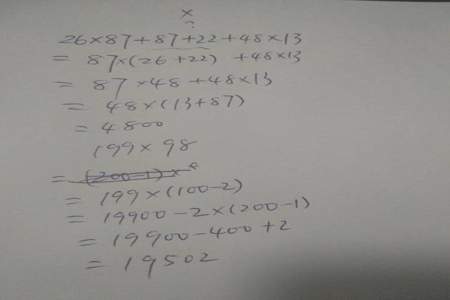 ×
26×87+87+22+48×13
= 87×(26+22) +48×13
= 87×48+48×13
= 48×(13+87)
= 4800
199×98
= (200-1)×
= 199×(100-2)
= 19900-2×(200-1)
= 19900-400+2
= 19502